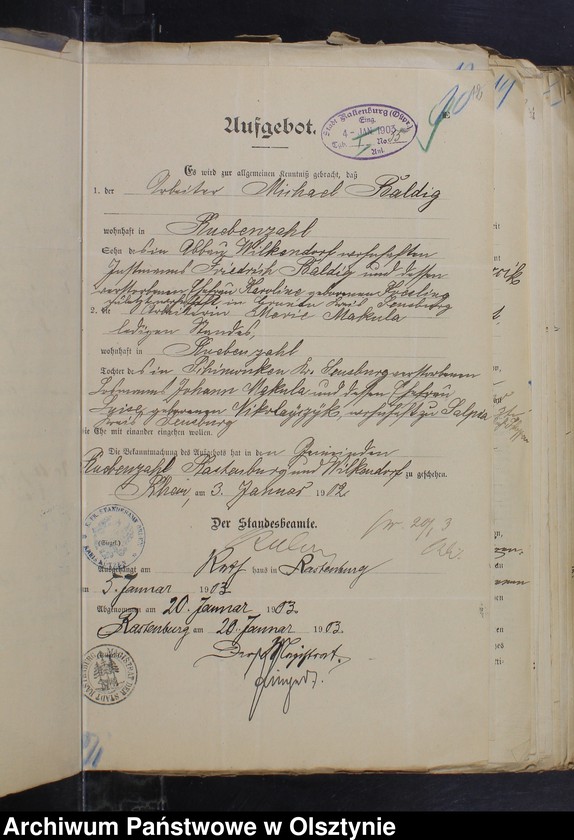 Aufgebot.
Stadt Rastenburg (Ostpr.)
Eing.
4 - JAN 1903
Tgb. I No. 35
Anl.
18
Es wird zur allgemeinen Kenntniß gebracht, daß
1. der Arbeiter Michael Baldig
wohnhaft in Ruebenzahl
Sohn des in Abbau Wilkendorf wohnhaften
Instmanns Friedrich Baldig und dessen
verstorbenen Ehefrau Karoline geborenen
zuletzt wohnhaft in Kreis Sensburg
2. die Arbeiterin Marie Makula
ledigen Standes,
wohnhaft in Ruebenzahl
Tochter des in Schimonken Kr. Sensburg verstorbenen
Losmanns Johann Makula und dessen Ehefrau
geborenen Nikolayczyk, wohnhaft zu Salpia
Kreis Sensburg
die Ehe mit einander eingehen wollen.
Die Bekanntmachung des Aufgebots hat in den Gemeinden
Ruebenzahl, Rastenburg und Wilkendorf zu geschehen.
Rhein, am 3. Januar 1902.
Der Standesbeamte.
(Siegel.)
Ausgehängt am Rathhaus in Rastenburg
am 5. Januar 1903.
Abgenommen am 20. Januar 1903.
Rastenburg am 20. Januar 1903.
Der Magistrat.
MAGISTRAT DER STADT RASTENBURG
Archiwum Państwowe w Olsztynie